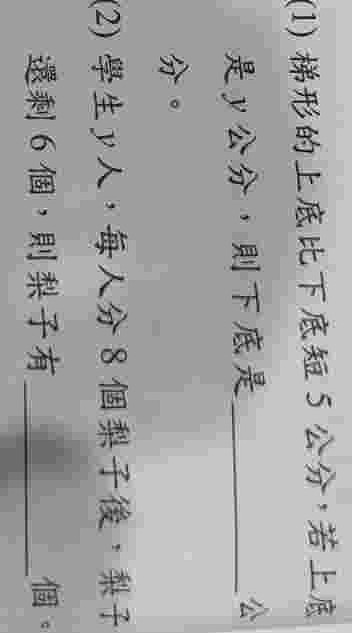 (1) 梯形的上底比下底短 5 公分，若上底
是 y 公分，則下底是______公
分。
(2) 學生 y 人，每人分 8 個梨子後，梨子
還剩 6 個，則梨子有______個。